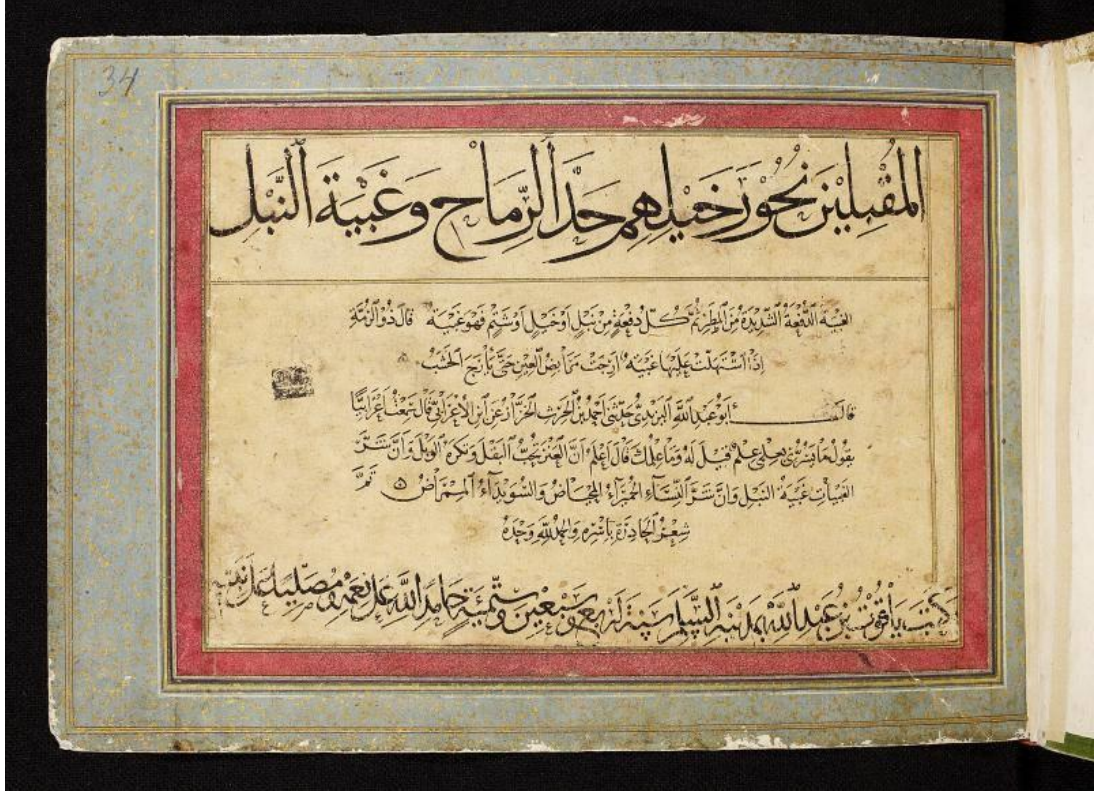 34
المُقْبِلِينَ نُحُورَ خَيْلِهِمُ حَدَّ الرِّمَاحِ وَغَبْيَةَ النَّبْلِ
الغبية الدفعة الشديدة من المطر ثم كل دفعة من نبل أو خيل أو شتم فهو غبية قال ذو الرمة
إذا استهلت عليها غبية أرجت مرابض العين حتى يأرج الخشب
قال أبو عبد الله اليزيدي حدثني أحمد بن الحرث الخزاز عن ابن الأعرابي قال سمعت أعرابيا
يقول ما يسرني بعلمي علم قيل له وما علمك قال أعلم أن العنز تحب البقل وتكره الوبل وأن شر
الغبيات غبية النبل وأن شر النساء الحميراء المحياض والسويداء الممراض تم
شعر الحادرة بأسره والحمد لله وحده
كتب ياقوت بن عبد الله بمدينة السلام سنة أربع وسبعين وستمئة حامدا لله على نعمه ومصليا على